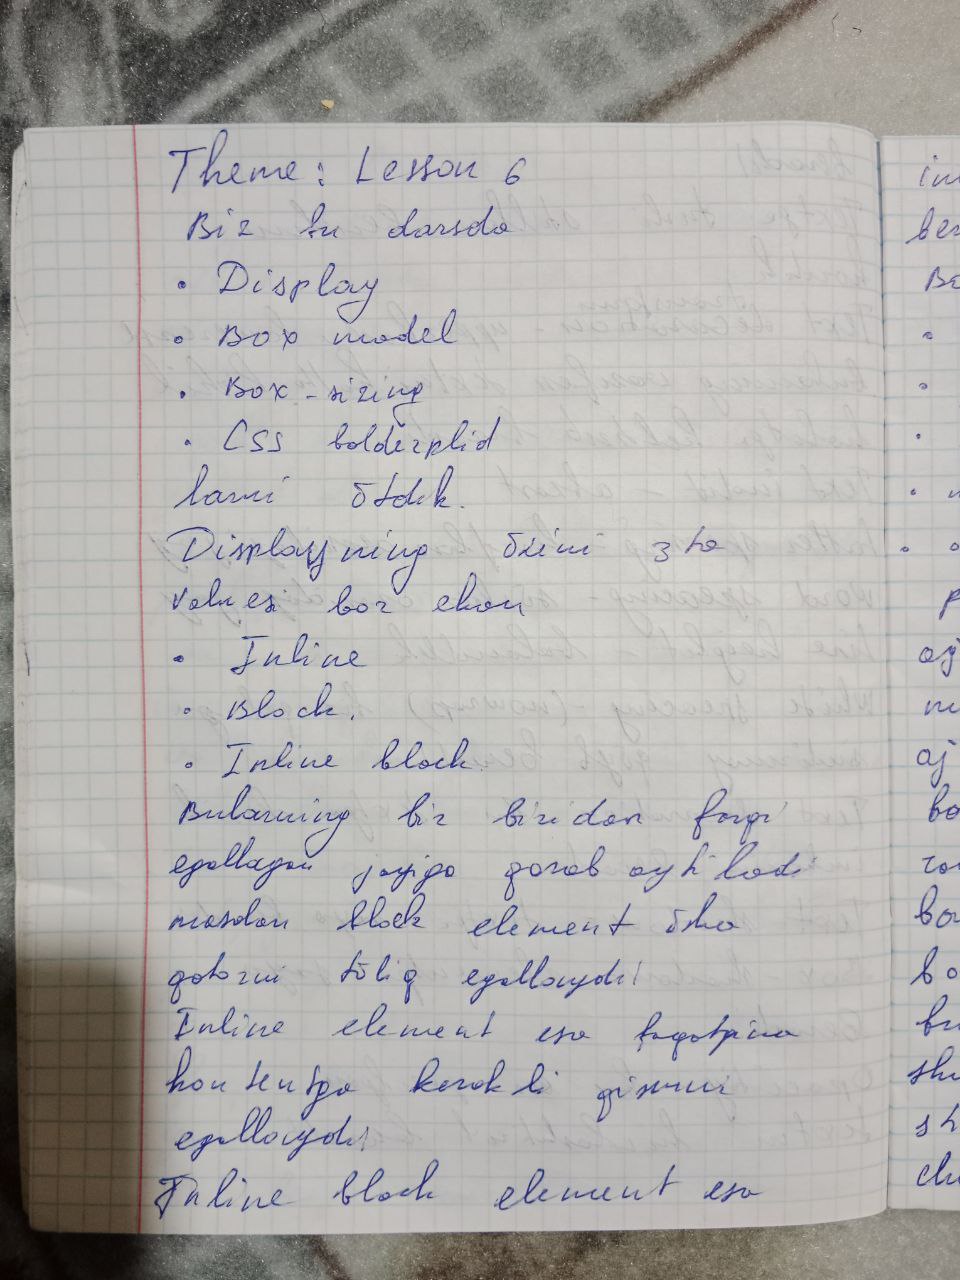 Theme: Lesson 6
Biz bu darsda
• Display
• Box model
• Box-sizing
• CSS bolderplid
larni ōtdik.
Displayning ōzini 3 ta
valuesi bor ekan
• Inline
• Block.
• Inline block.
Bularning bir biridan farqi
egallagan joyiga qarab aytiladi
masalan block element ōsha
qatorni tōliq egallaydi
Inline element esa faqatgina
kontentga kerakli qismni
egallaydi
Inline block element esa